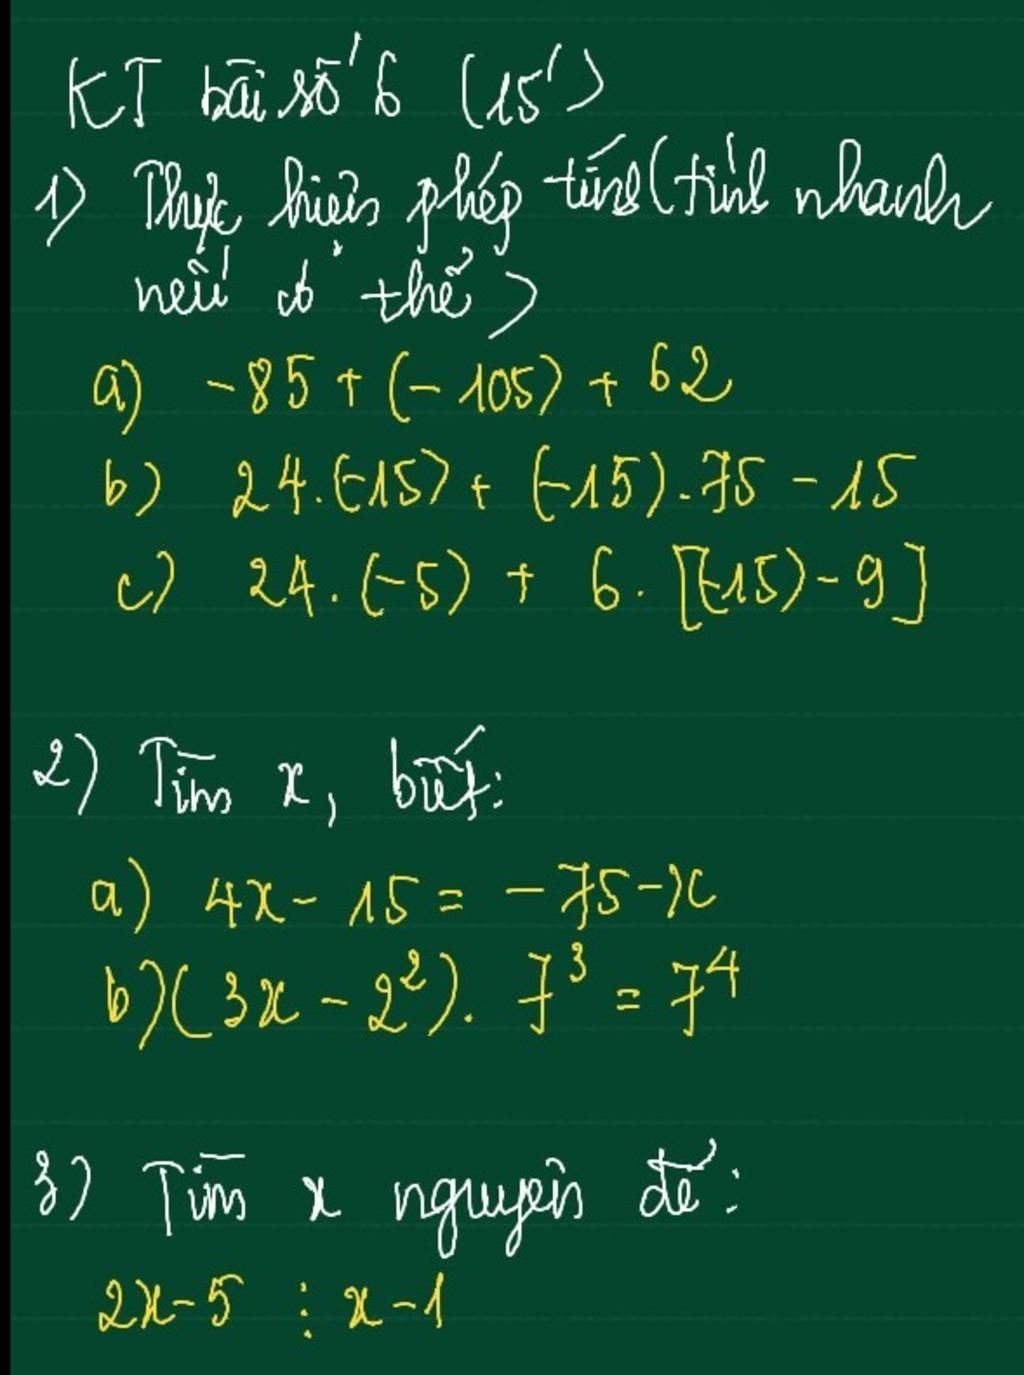 KT bài số 6 (15')
1) Thực hiện phép tính (tính nhanh
nếu có thể)
a) -85 + (-105) + 62
b) 24.(-15) + (-15).75 - 15
c) 24.(-5) + 6.[(-15)-9]
2) Tìm x, biết:
a) 4x - 15 = -75-x
b) (3x - 2²). 7³ = 7⁴
3) Tìm x nguyên để:
2x-5 ⋮ x-1